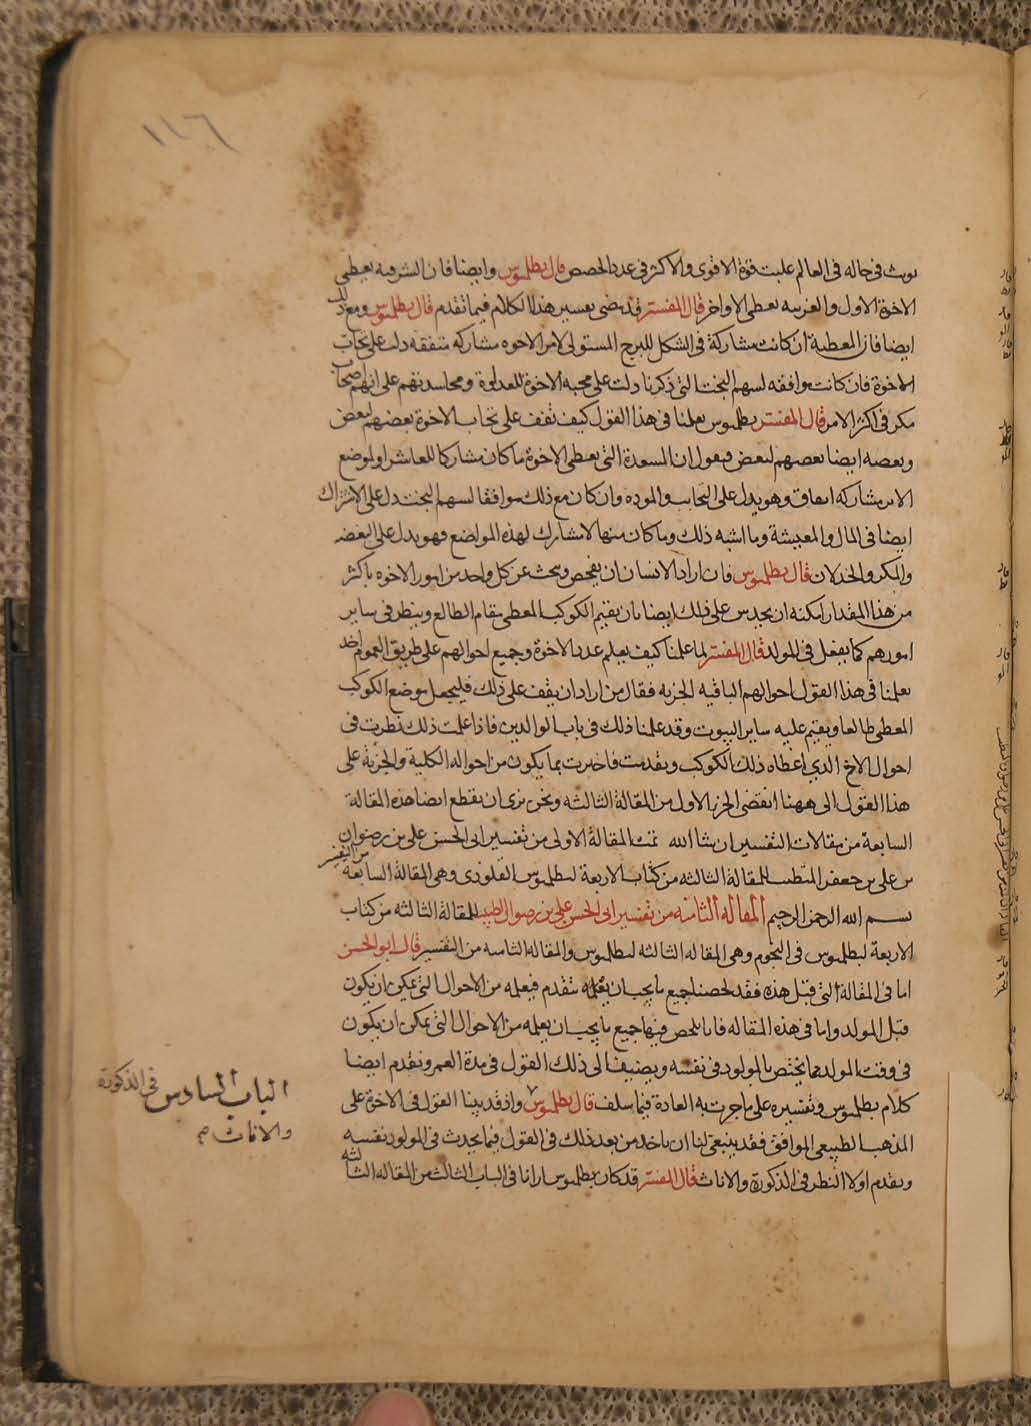 ١١٦
يوث في حاله في العالم غلبت قوة الاقوى والاكثر في عدد الحصص قال بطلميوس وايضا فان الشرقية يعطي
الاخوة الاول والغربيه يعطى الاواخر قال المفسر قد مضى تفسير هذا الكلام فيما تقدم قال بطلميوس ومع ذلك
ايضا فان المعطية ان كانت مشاركة في الشكل للبرج المستولى لامر الاخوه مشاركه متفقه دلت على تحاب
الاخوة فان كانت موافقه لسهم البخت التي ذكرنا دلت على محبه الاخوة للعداوة ومحاسدتهم على انهم اصحاب
مكر في اكثر الامر قال المفسر بطلميوس يعلمنا في هذا القول كيف نقف على تحاب الاخوة بعضهم لبعض
وبعضه ايضا بعضهم لبعض فيقول ان السعدة التي يعطى الاخوة ما كان مشاركا للعاشر او لموضع
الام مشاركه اتفاق وهو يدل على التحاب والموده وان كان مع ذلك موافقا لسهم البخت دل على الاشتراك
ايضا في المال والمعيشة وما اشبه ذلك وما كان منها لا يشارك لهذه المواضع فهو يدل على البغضه
والمكر والخذلان قال بطلميوس فان اراد الانسان ان يفحص ويبحث عن كل واحد من امور الاخوه باكثر
من هذا المقدار امكنه ان يحدس على ذلك ايضا بان يقيم الكوكب المعطى مقام الطالع وينظر في ساير
امورهم كما يفعل في المولد قال المفسر لما علمنا كيف يعلم عدد الاخوة وجميع احوالهم على طريق العموم اخذ
يعلمنا في هذا القول احوالهم الباقيه الجزيه فقال من اراد ان يقف على ذلك فليجعل موضع الكوكب
المعطى طالعا ويقيم عليه ساير البيوت وقد علمنا ذلك في باب الوالدين فاذا علمت ذلك نظرت في
احوال الاخ الذي اعطاه ذلك الكوكب وتقدمت فاخبرت بما يكون من احواله الكلية والجزية على
هذا القول الى ههنا انقضى الجزء الاول من المقالة الثالثه ونحن نرى ان نقطع ايضا هذه المقالة
السابعة من مقالات التفسير ان شا الله تمت المقالة الاولى من تفسير ابى الحسن على بن رضوان
بن على بن جعفر المتطبب للمقالة الثالثه من كتاب الاربعة لبطلميوس القلوذى وهى المقالة السابعة من التفسير
بسم الله الرحمن الرحيم المقاله الثامنه من تفسير ابى الحسن على بن رضوان الطبيب للمقالة الثالثه من كتاب
الاربعة لبطلميوس في النجوم وهى المقاله الثالثه لبطلميوس والمقاله الثامنه من التفسير قال ابو الحسن
اما في المقالة التي قبل هذه فقد لخصنا جميع ما يجب ان يعلمه متقدم فيعلمه من الاحوال التي يمكن ان يكون
قبل المولد واما في هذه المقاله فانا نلخص فيها جميع ما يجب ان يعلمه من الاحوال التي يمكن ان يكون
في وقت المولد مما يختص بالمولود في نفسه ويضيف الى ذلك القول في مدة العمر ونقدم ايضا
كلام بطلميوس وتفسيره على ما جرت به العادة فيما سلف قال بطلميوس واذ قد بينا القول في الاخوة على
المذهب الطبيعي الموافق فقد ينبغى لنا ان ناخذ من بعد ذلك في القول فيما يحدث في المولود نفسه
ونقدم اولا النظر في الذكورة والاناث قال المفسر قد كان بطلميوس ارانا في الباب الثالث من المقاله الثالثه
الباب السادس في الذكورة
والاناث